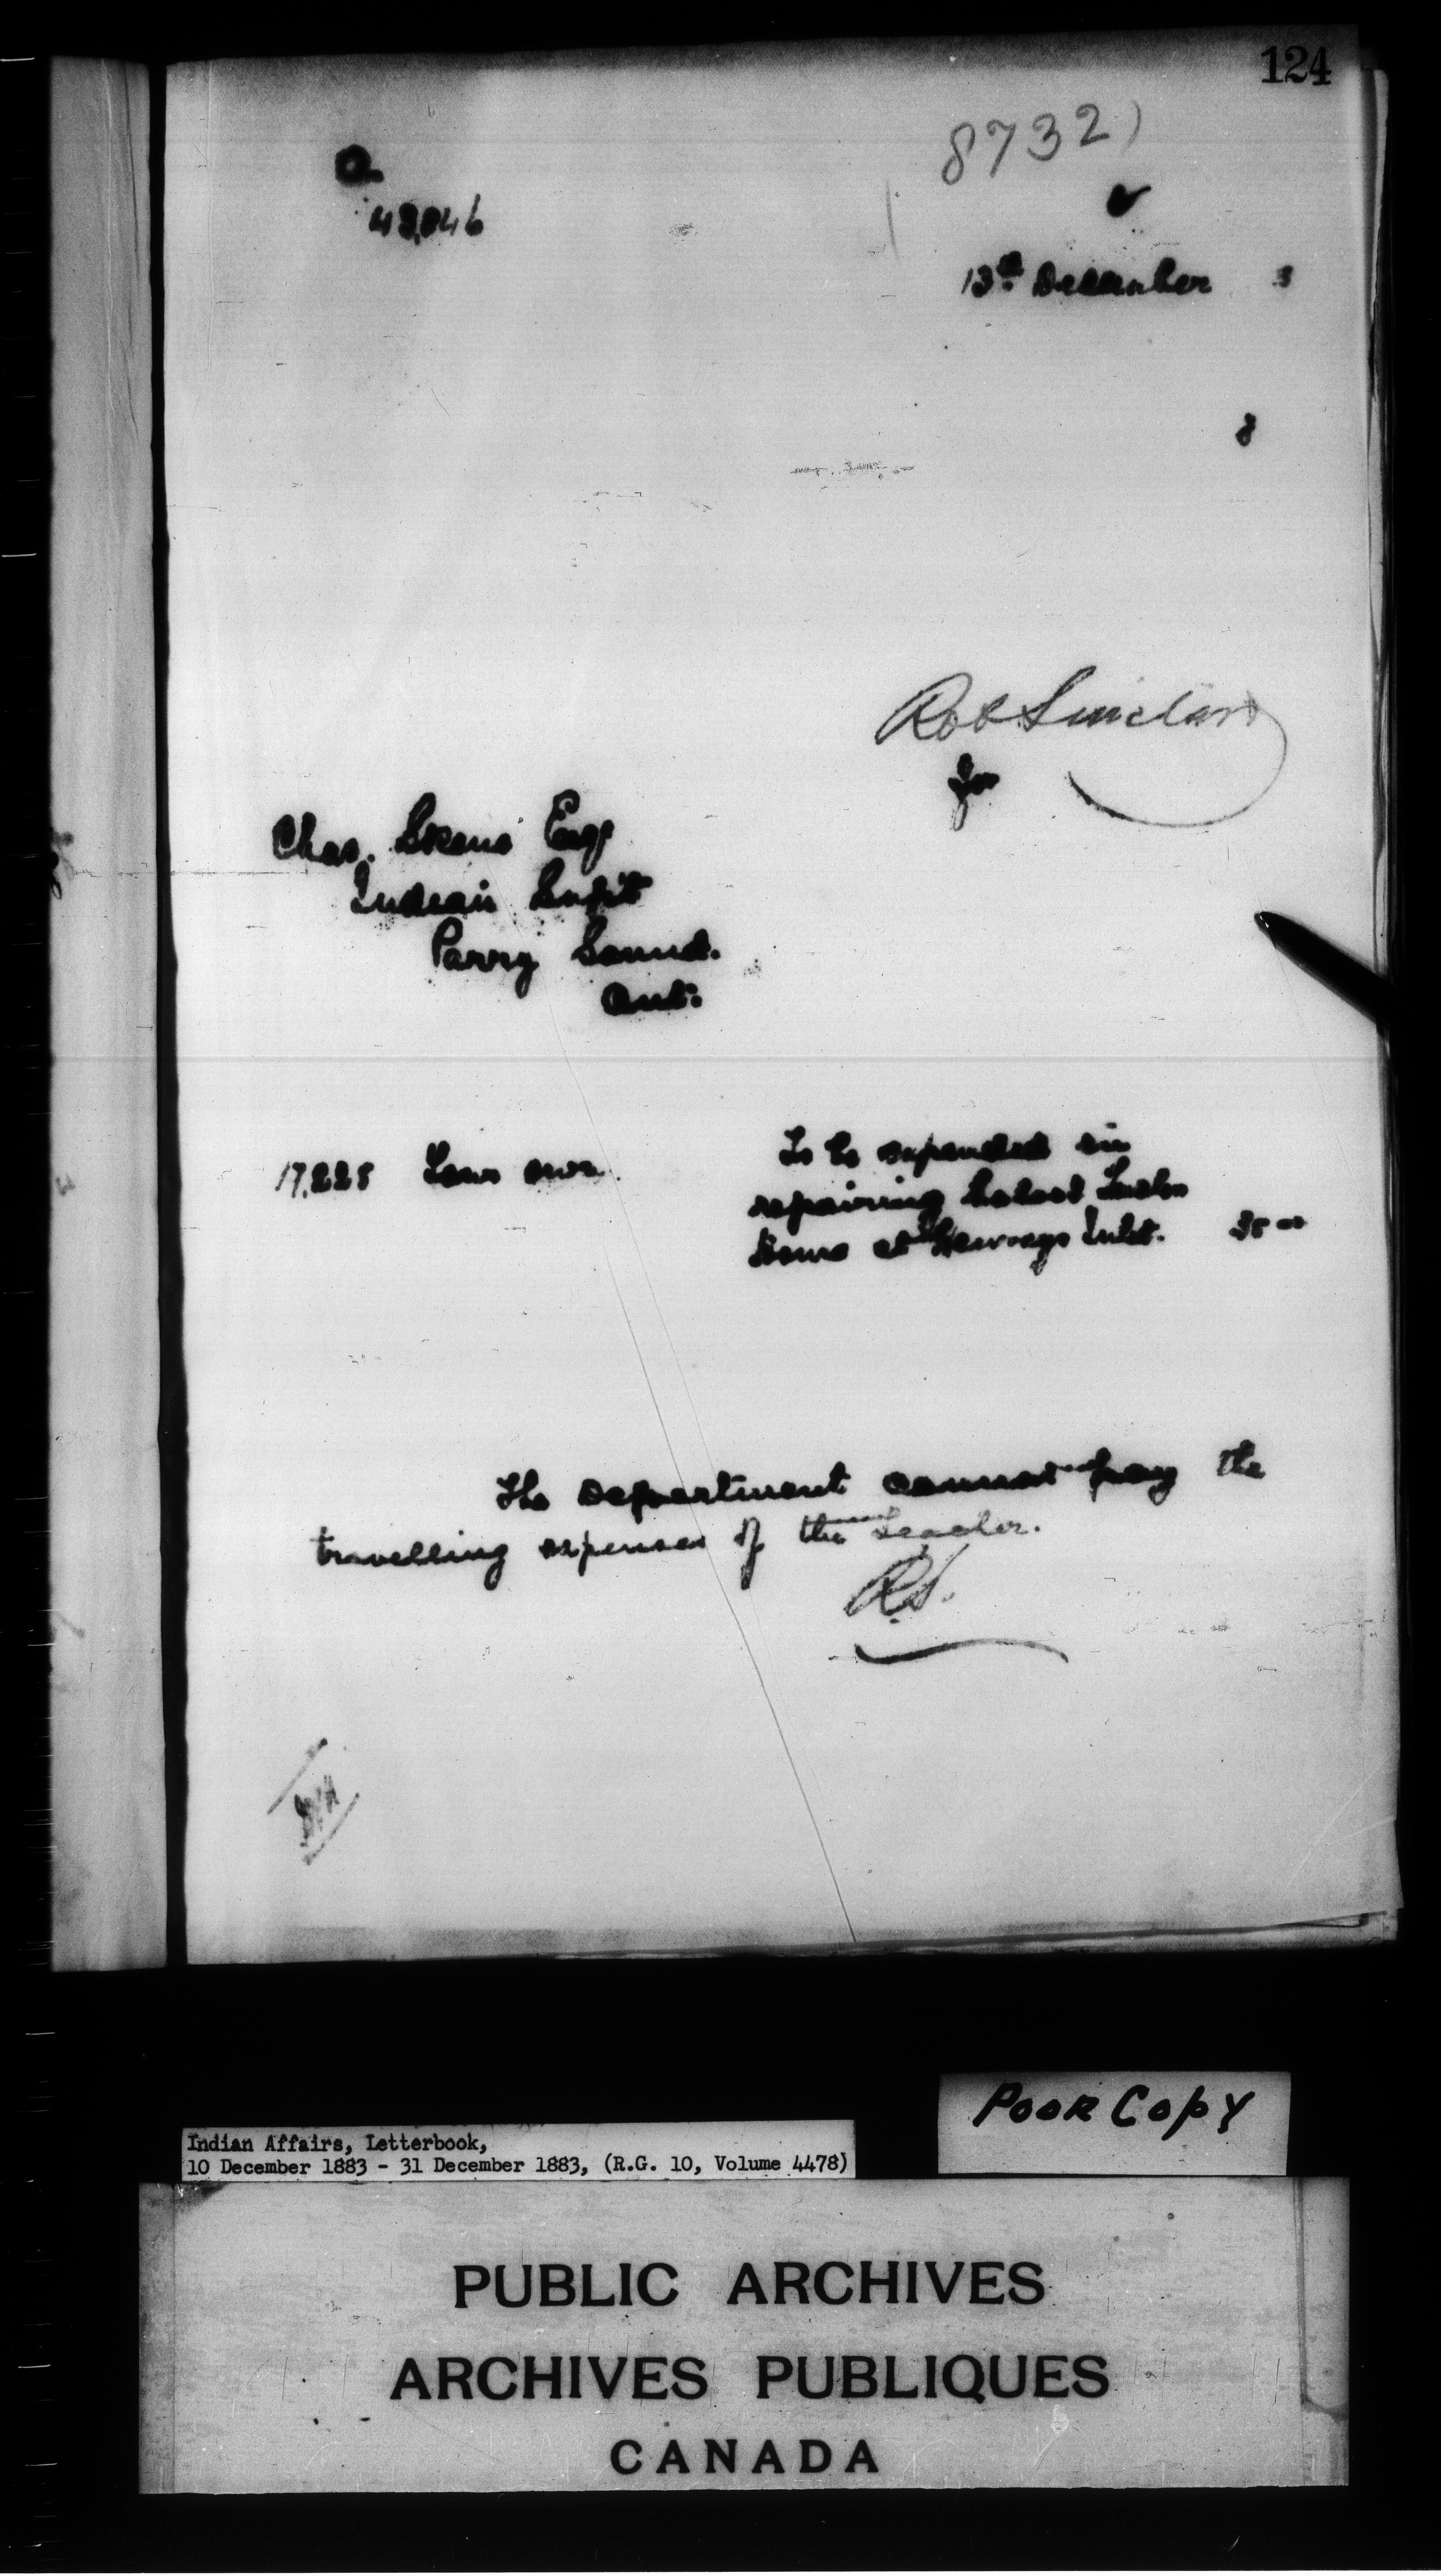 124
8732
13th December 3
3
Robt Sinclair
for
Chas. Skene Esqr
Indian Supt
Parry Sound.
Ont.
To be expended in
17,228 Your own
repairing School Teacher
House at Henvey's Inlet. 35 00
The Department cannot pay the
travelling expenses of the Teacher.
R.S.
Poor Copy
Indian Affairs, Letterbook,
10 December 1883 - 31 December 1883, (R.G. 10, Volume 4478)
PUBLIC ARCHIVES
ARCHIVES PUBLIQUES
CANADA